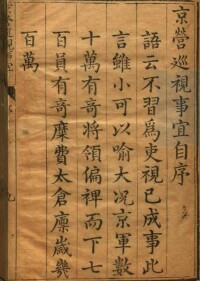 京營巡視事宜自序
語云不習為吏視已成事此
言雖小可以喻大况京軍數
十萬有奇將領偏裨而下七
百員有奇糜費太倉廩歲幾
百萬